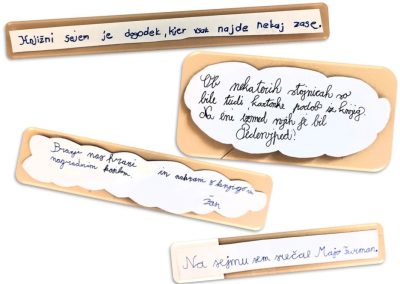 Knjižni sejem je dogodek, kjer vsak najde nekaj zase.
Ob nekaterih stojnicah so
bile tudi kartonske podobe iz knjig.
Na eni izmed njih je bil
Pedenjped!
Branje nas hrani in nahrani s knjigo in
nagradnim bonbonom.
Žan
Na sejmu sem srečal Majo Furman.